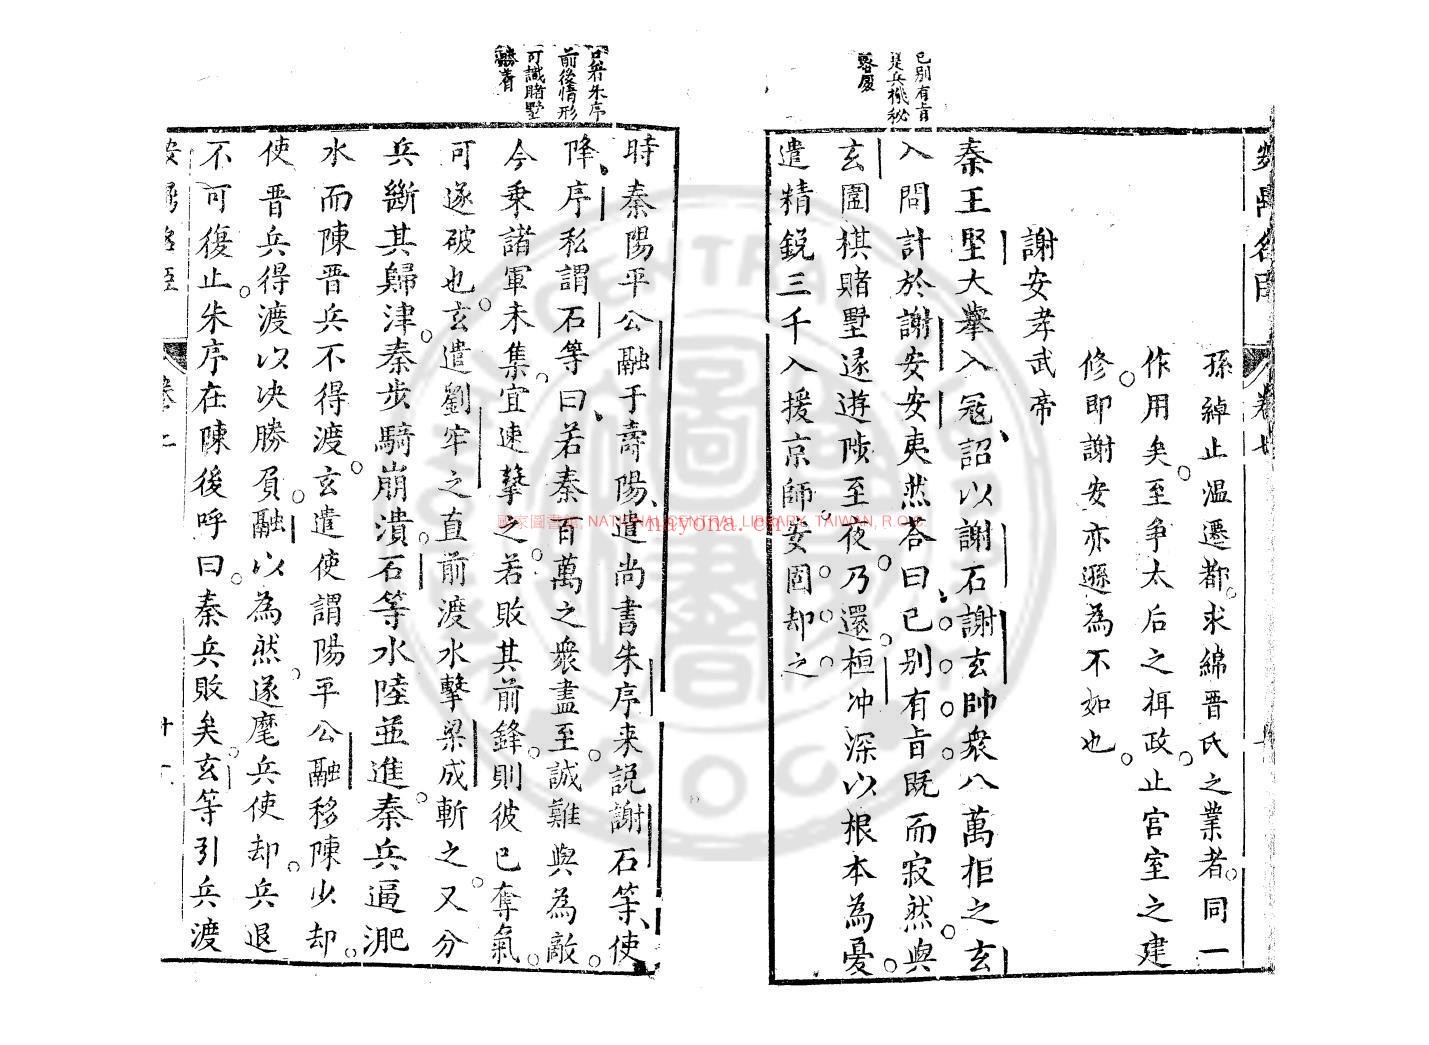 孫綽止溫遷都求綿晋氏之業者同一
作用矣至爭太后之稱政止官室之建
修即謝安亦遜為不如也
謝安孝武帝
秦王堅大舉入冦詔以謝石謝玄帥衆八萬拒之玄
入問計於謝安安夷然答曰已别有㫖既而寂然與
玄圍棋賭墅遂遊陟至夜乃還桓冲深以根本為憂
遣精鋭三千入援京師安固却之
已别有㫖
是兵機秘
時秦陽平公融于壽陽遣尚書朱序来説謝石等使
降序私謂石等曰若秦百萬之衆盡至誠難與為敵
今乗諸軍未集宜速擊之若敗其前鋒則彼已奪氣
可遂破也玄遣劉牢之直前渡水擊梁成斬之又分
兵斷其歸津秦步騎崩潰石等水陸並進秦兵逼淝
水而陳晋兵不得渡玄遣使謂陽平公融移陳少却
使晋兵得渡以决勝負融以為然遂麾兵使却兵退
不可復止朱序在陳後呼曰秦兵敗矣玄等引兵渡
前後情形
可識賭墅
國家圖書館, NATIONAL CENTRAL LIBRARY, TAIWAN, R.O.C.
nayona.cn